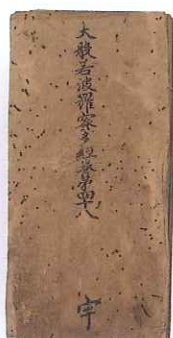 大般若波羅蜜多經卷第四十八
宇